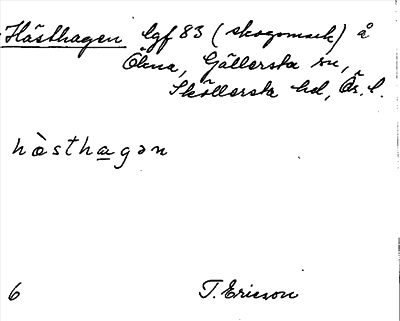 Hästhagen lgf 83 (skogsmark) å
Ökna, Gällersta sn,
Sköllersta hd, Ör. l.
hɑ̀sthagən
6
T. Ericson